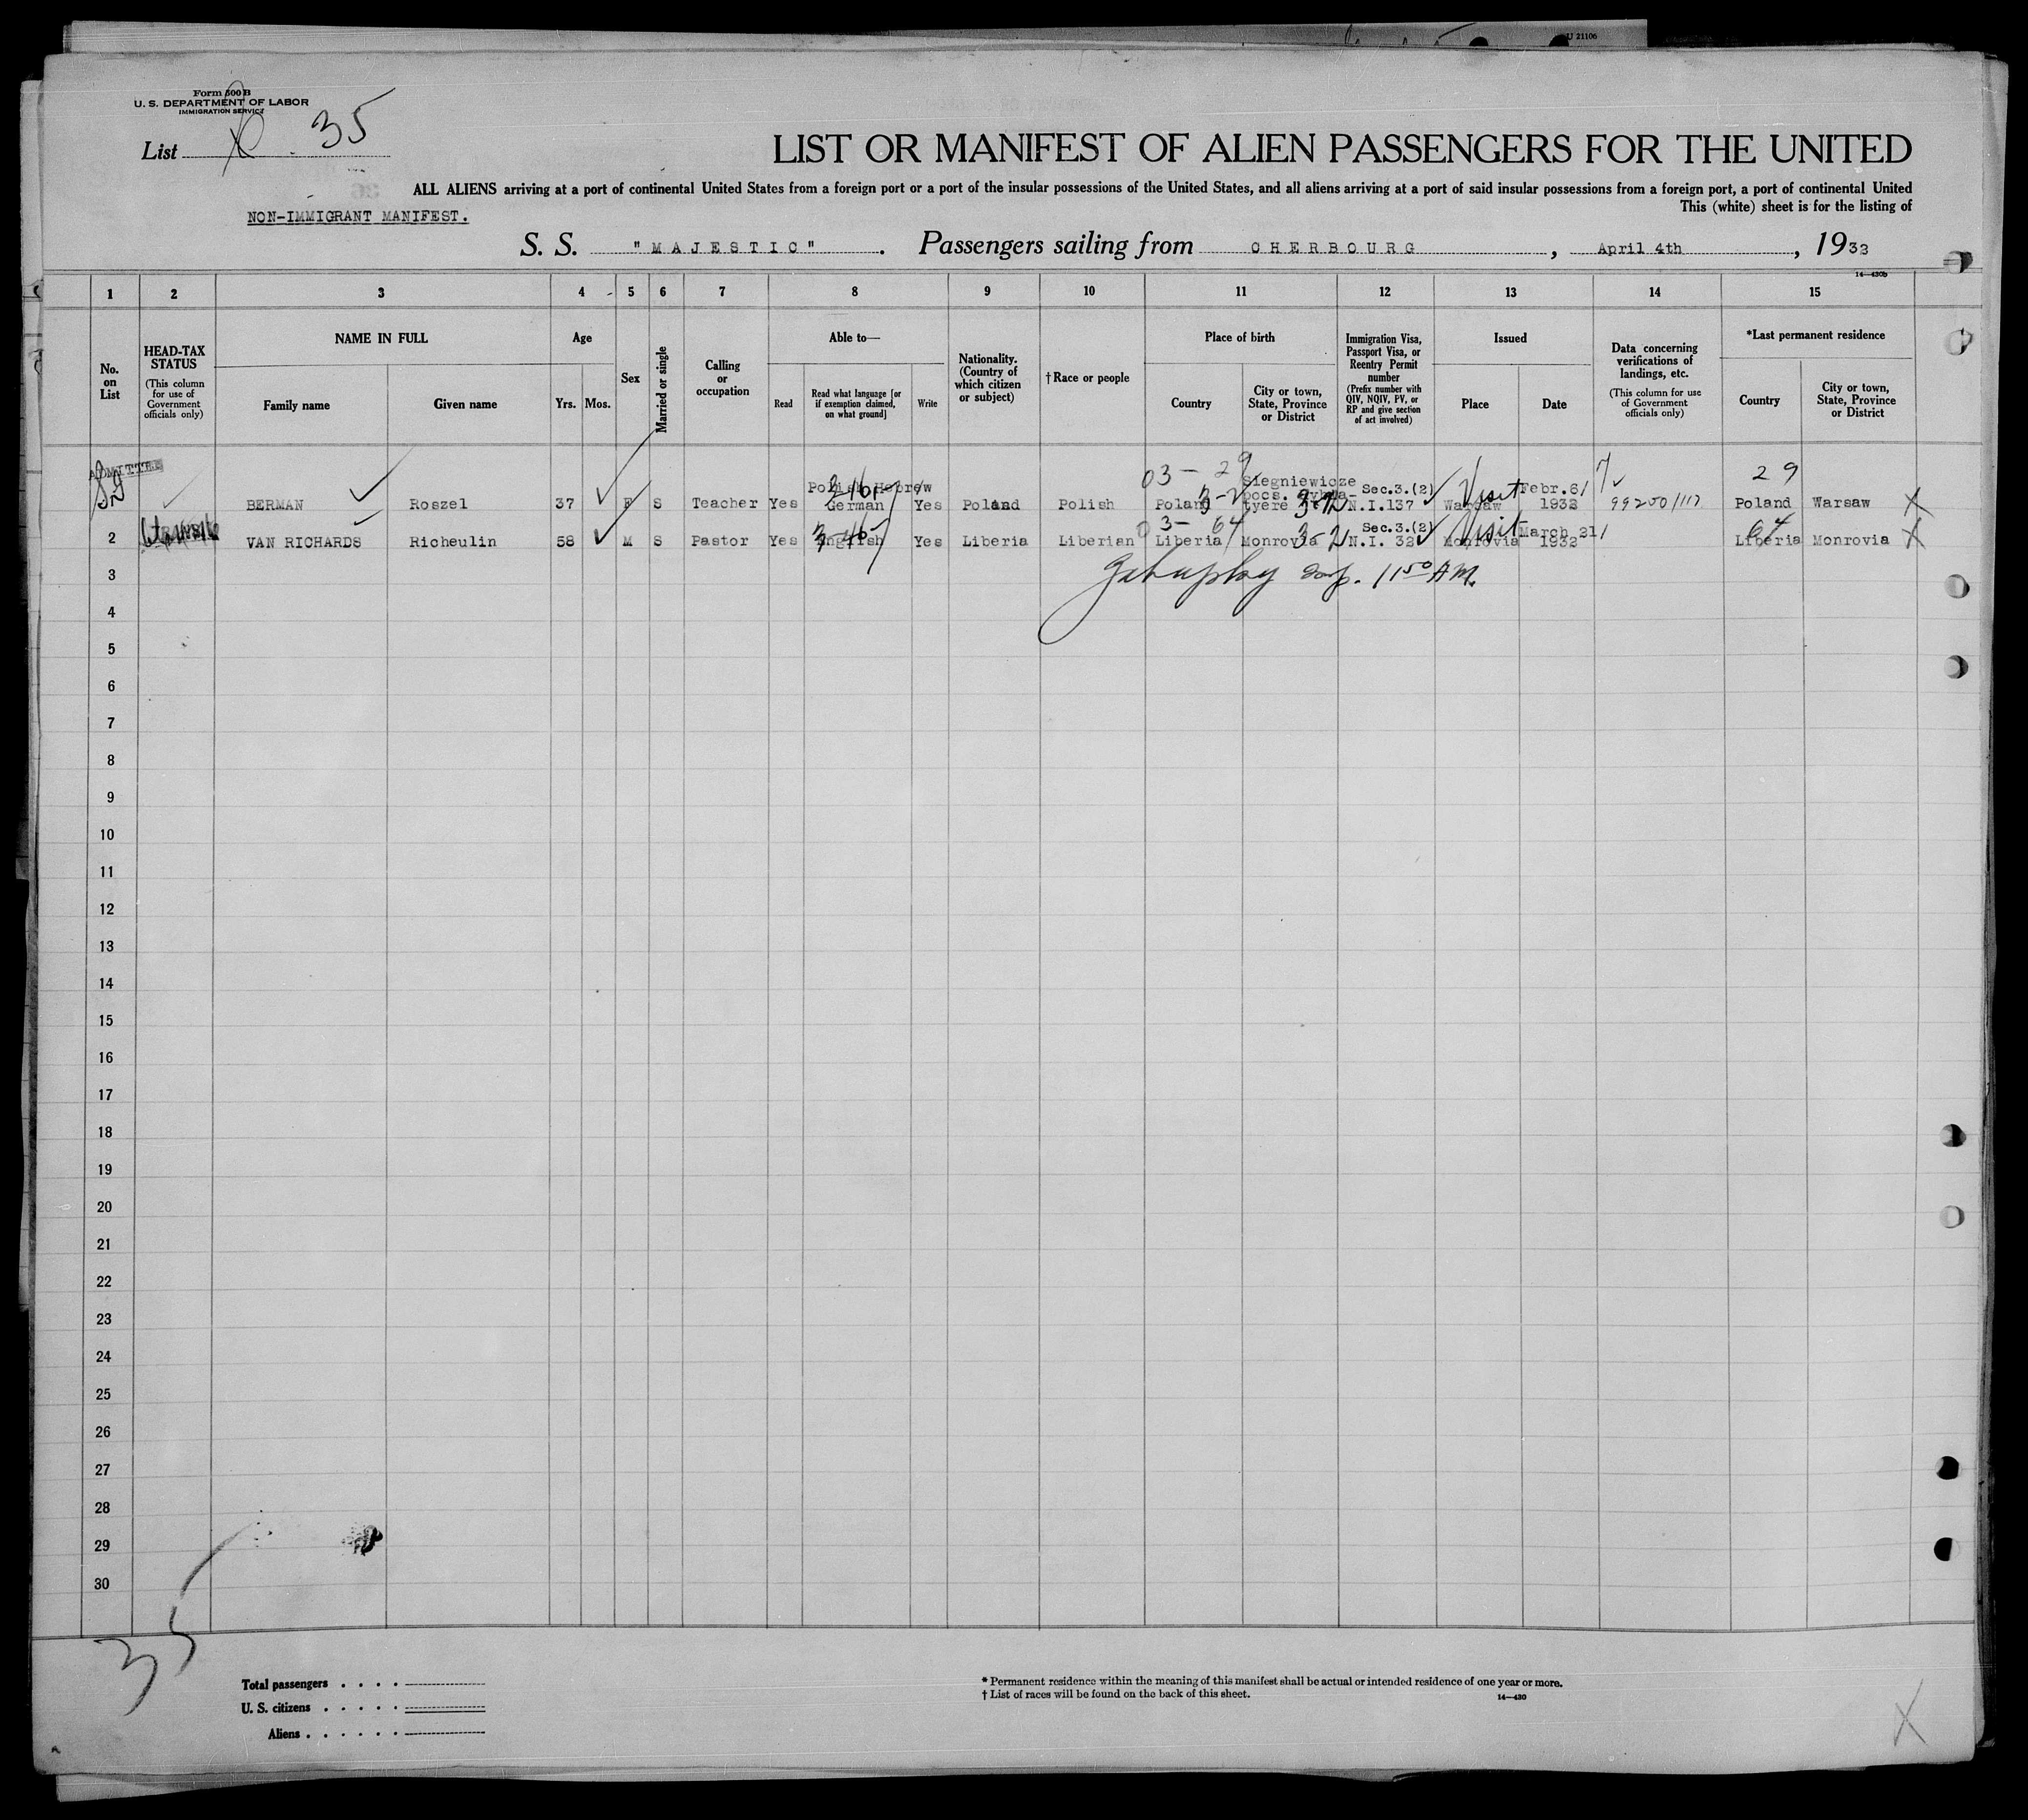 U 21106
Form 500 B
U. S. DEPARTMENT OF LABOR
IMMIGRATION SERVICE
List 35
LIST OR MANIFEST OF ALIEN PASSENGERS FOR THE UNITED
ALL ALIENS arriving at a port of continental United States from a foreign port or a port of the insular possessions of the United States, and all aliens arriving at a port of said insular possessions from a foreign port, a port of continental United
This (white) sheet is for the listing of
NON-IMMIGRANT MANIFEST.
S. S. "MAJESTIC". Passengers sailing from CHERBOURG, April 4th, 1932
14—430b
1 2 3 4 5 6 7 8 9 10 11 12 13 14 15
No. on List
HEAD-TAX STATUS
(This column for use of Government officials only)
NAME IN FULL
Family name
Given name
Age
Yrs.
Mos.
Sex
Married or single
Calling or occupation
Able to—
Read
Read what language [or if exemption claimed, on what ground]
Write
Nationality. (Country of which citizen or subject)
† Race or people
Place of birth
Country
City or town, State, Province or District
Immigration Visa, Passport Visa, or Reentry Permit number
(Prefix number with QIV, NQIV, PV, or RP and give section of act involved)
Issued
Place
Date
Data concerning verifications of landings, etc.
(This column for use of Government officials only)
*Last permanent residence
Country
City or town, State, Province or District
ADMITTED
03 - 29
29
BERMAN Roszel 37 F S Teacher Yes Polish Hebrew German Yes Poland Polish Poland Siegniewicze Sec.3.(2) N.I.137 Visit Warsaw Febr.6/ 1932 99250/117 Poland Warsaw X
3-161
3-2
03- 64
64
2 VAN RICHARDS Richeulin 58 M S Pastor Yes English Yes Liberia Liberian Liberia Monrovia Sec.3.(2) N.I. 32 Visit Monrovia March 21/ 1932 Liberia Monrovia X
3-46
3-2
3 11 50 AM.
4
5
6
7
8
9
10
11
12
13
14
15
16
17
18
19
20
21
22
23
24
25
26
27
28
29
30
35
Total passengers . . . .
U. S. citizens . . . . .
Aliens . . . . . .
* Permanent residence within the meaning of this manifest shall be actual or intended residence of one year or more.
† List of races will be found on the back of this sheet.
14—430
X